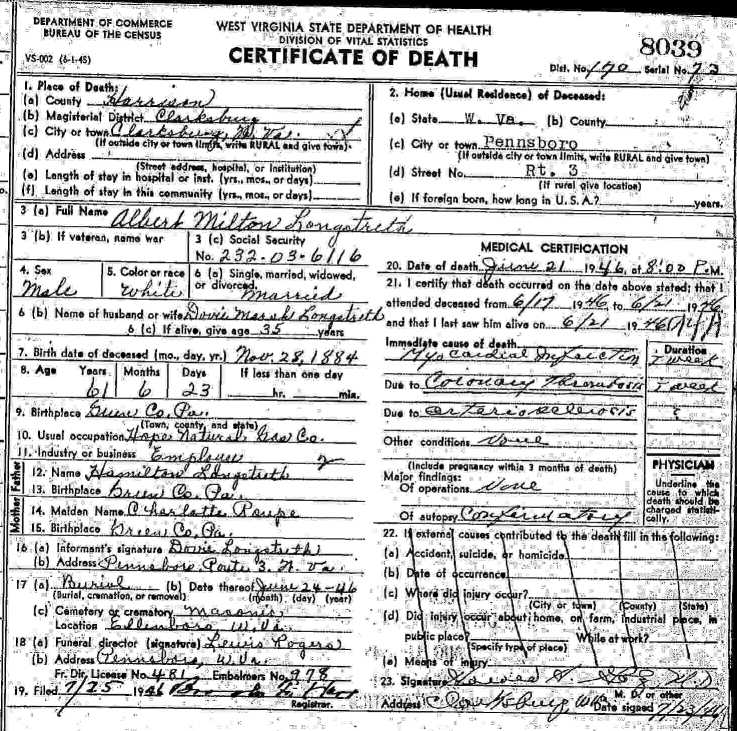 DEPARTMENT OF COMMERCE
BUREAU OF THE CENSUS
VS-002 (6-1-45)
WEST VIRGINIA STATE DEPARTMENT OF HEALTH
DIVISION OF VITAL STATISTICS
CERTIFICATE OF DEATH
8039
Dist. No. 190 Serial No. 73
1. Place of Death:
(a) County Harrison
(b) Magisterial District Clarksburg
(c) City or town Clarksburg, W. Va.
(If outside city or town limits, write RURAL and give town)
(d) Address
(Street address, hospital, or institution)
(e) Length of stay in hospital or inst. (yrs., mos., or days)
(f) Length of stay in this community (yrs., mos., or days)
2. Home (Usual Residence) of Deceased:
(a) State W. Va. (b) County
(c) City or town Pennsboro
(If outside city or town limits, write RURAL and give town)
(d) Street No. Rt. 3
(If rural give location)
(e) If foreign born, how long in U.S.A.? years.
3 (a) Full Name Albert Milton Longstreth
3 (b) If veteran, name war
3 (c) Social Security
No. 232-03-6116
4. Sex
Male
5. Color or race
White
6 (a) Single, married, widowed,
or divorced. Married
6 (b) Name of husband or wife Dovie Longstreth
6 (c) If alive, give age 35 years
7. Birth date of deceased (mo., day, yr.) Nov. 28, 1884
8. Age Years Months Days If less than one day
61 6 23 hr. min.
9. Birthplace Green Co. Pa.
(Town, county, and state)
10. Usual occupation Hope Natural Gas Co.
11. Industry or business Employee
Father
12. Name Hamilton Longstreth
13. Birthplace Green Co. Pa.
Mother
14. Maiden Name Charlotte Roupe
15. Birthplace Green Co. Pa.
16 (a) Informant's signature Dovie Longstreth
(b) Address Pennsboro Route 3. W. Va.
17 (a) Burial (b) Date thereof June 24-46
(Burial, cremation, or removal) (month) (day) (year)
(c) Cemetery or crematory Masonic
Location Ellenboro W. Va.
18 (a) Funeral director (signature) Lewis Rogers
(b) Address Pennsboro, W. Va.
Fr. Dir. License No. 481 Embalmers No. 978
19. Filed 7/25 1946
Registrar.
MEDICAL CERTIFICATION
20. Date of death June 21 1946, at 8:00 P.M.
21. I certify that death occurred on the date above stated; that I
attended deceased from 6/17 1946 to 6/21 1946
and that I last saw him alive on 6/21 1946
Immediate cause of death Duration
Myocardial Infarction 1 week
Due to Coronary Thrombosis 1 week
Due to arteriosclerosis ?
Other conditions None
(Include pregnancy within 3 months of death)
Major findings:
Of operations None
Of autopsy Confirmatory
PHYSICIAN
Underline the
cause to which
death should be
charged statisti-
cally.
22. If external causes contributed to the death fill in the following:
(a) Accident, suicide, or homicide
(b) Date of occurrence
(c) Where did injury occur?
(City or town) (County) (State)
(d) Did injury occur about home, on farm, industrial place, in
public place? While at work?
(Specify type of place)
(e) Means of injury
23. Signature M.D.
M. D. or other
Address Clarksburg, W. Va. Date signed 7/23/46